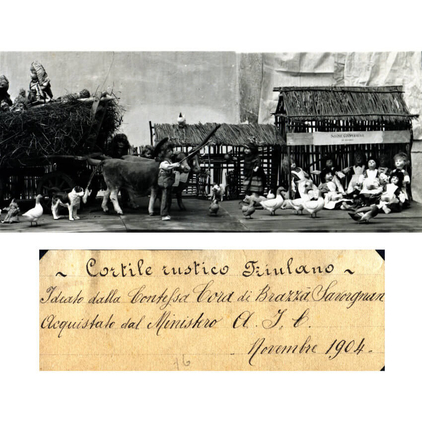 ~ Cortile rustico Friulano ~
Ideato dalla Contessa Cora di Brazzà Savorgnan
Acquistato dal Ministero A. I. C.
Novembre 1904.
76